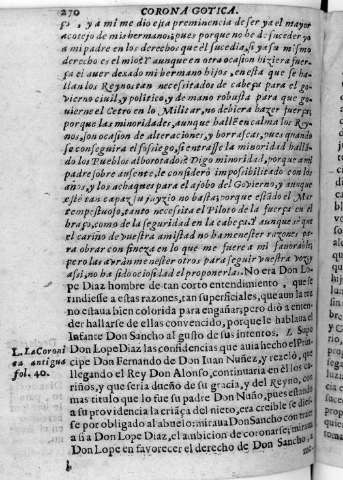 270 CORONA GOTICA.
so, y a mi me dio esta preminencia de ser ya el mayor
a cotejo de mis hermanos; pues porque no he de suceder yo
a mi padre en los derechos que èl sucedia, si ya su mismo
derecho es el mio? Y aunque en otra ocasion hiziera fuer-
ça el auer dexado mi hermano hijos, en esta que se ha-
llan los Reynos tan necesitados de cabeça para el go-
vierno civil, y politico, y de mano robusta para que go-
vierne el Cetro en lo Militar, no debiera hazer fuerça;
porque las minoridades, aunque hallẽ en calma los Rey-
nos, son ocasion de alteraciones, y borrascas, pues quando
se conseguira el sosiego, si entrasse la minoridad hallã-
do los Pueblos alborotados? Digo minoridad, porque a mi
padre sobre ausente, le considerò imposibilitado con los
años, y los achaques para el afobo del Govierno, y aunque
estè tan capaz su juyzio no basta; porque estãdo el Mar
tempestuoso, tanto necesita el Piloto de la fuerça en el
braço, como de la seguridad en la cabeça. Y aunque sè que
el cariño de vuestra amistad no ha menester razones pa-
ra obrar con fineza en lo que me fuere a mi favorable,
pero las avrán menester otros para seguir vuestra voz, y
assi, no ha sido ociosidad el proponerlas. No era Don Lo-
pe Diaz hombre de tan corto entendimiento, que se
rindiesse a estas razones, tan superficiales, que aun la tez
no estaua bien colorida para engañar; pero diò a enten-
der hallarse de ellas convencido, porque le hablaua el
Infante Don Sancho al gusto de sus intentos. Supo
Don Lope Diaz las confidencias que auia hecho el Prin-
cipe Don Fernando de Don Iuan Nuñez, y rezelò, que
llegando el Rey Don Alonso, continuaria en èl los ca-
riños, y que seria dueño de su gracia, y del Reyno, con
mas titulo que lo fue su padre Don Nuño, pues estando
a su providencia la criãça del nieto, era creible se diesse
por obligado al abuelo: miraua Don Sancho con
a si a Don Lope Diaz, el ambicion de coronarse; miraua
Don Lope en favorecer el derecho de Don Sancho, a
L. La Coroni
ca antigua
fol. 40.